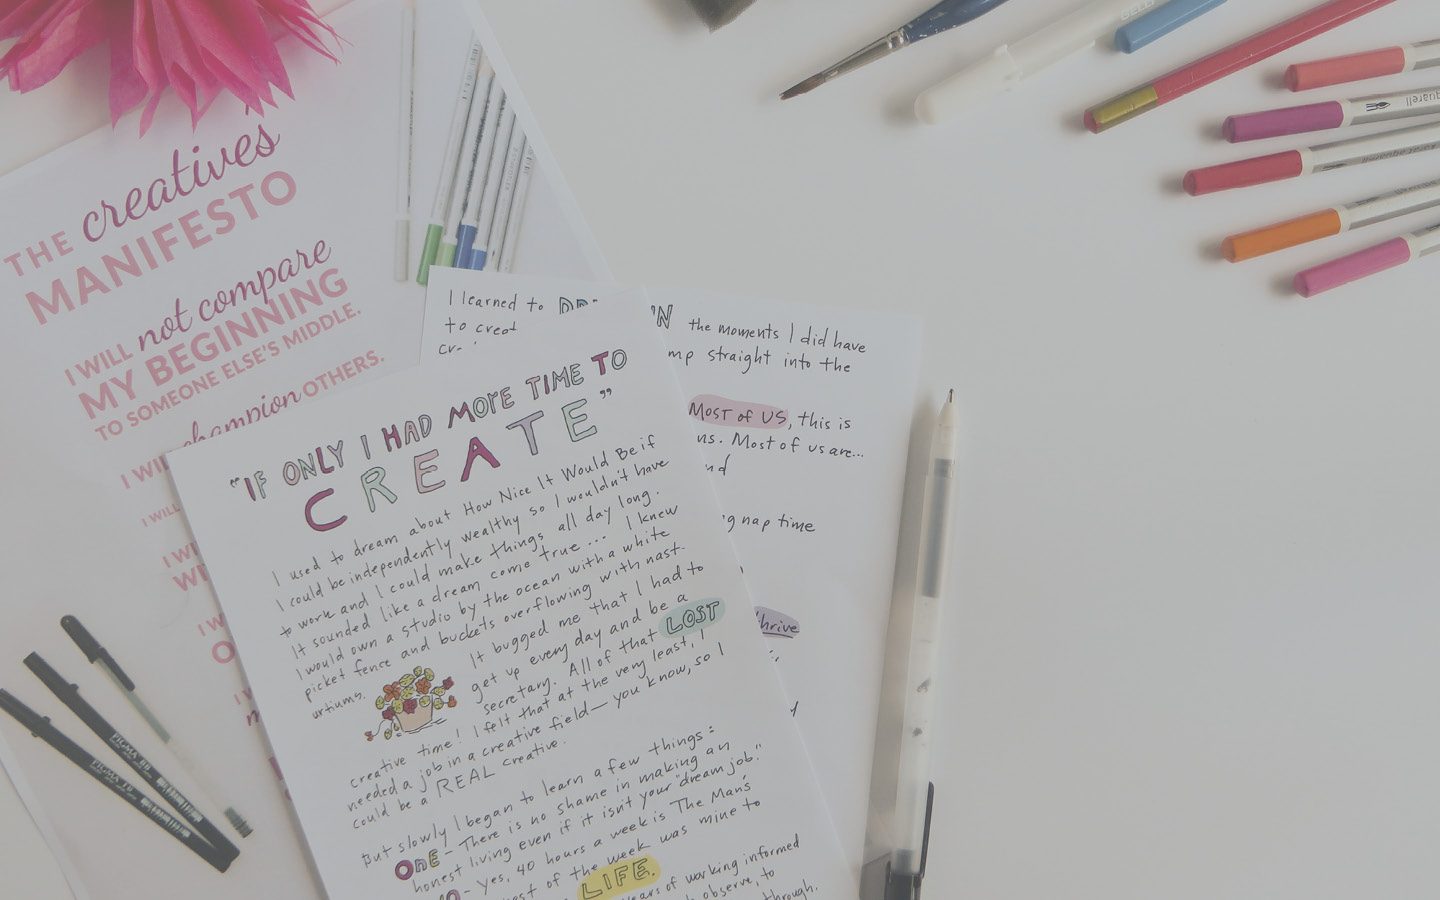 THE creative's
MANIFESTO
I WILL not compare
MY BEGINNING
TO SOMEONE ELSE'S MIDDLE.
I WILL champion OTHERS.
I WILL
I WI
I learned to
to creat
the moments I did have
mp straight into the
Most of US, this is
ns. Most of us are...
nd
ng nap time
thrive
"IF ONLY I HAD MOrE TIME TO
CREATE"
I used to dream about How Nice It Would Be if
I could be independently wealthy so I wouldn't have
to work and I could make things all day long.
It sounded like a dream come true... I knew
I would own a studio by the ocean with a white
picket fence and buckets overflowing with nast-
urtiums.
It bugged me that I had to
get up every day and be a
secretary. All of that LOST
creative time! I felt that at the very least, I
needed a job in a creative field— you know, so I
could be a REAL creative.
But slowly I began to learn a few things:
OnE - There is no shame in making an
honest living even if it isn't your "dream job."
- Yes, 40 hours a week is The Man's
est of the week was mine to
LIFE.
years of working informed
observe, to
through.
PIGMA
PIGMA
GELLY
quarell